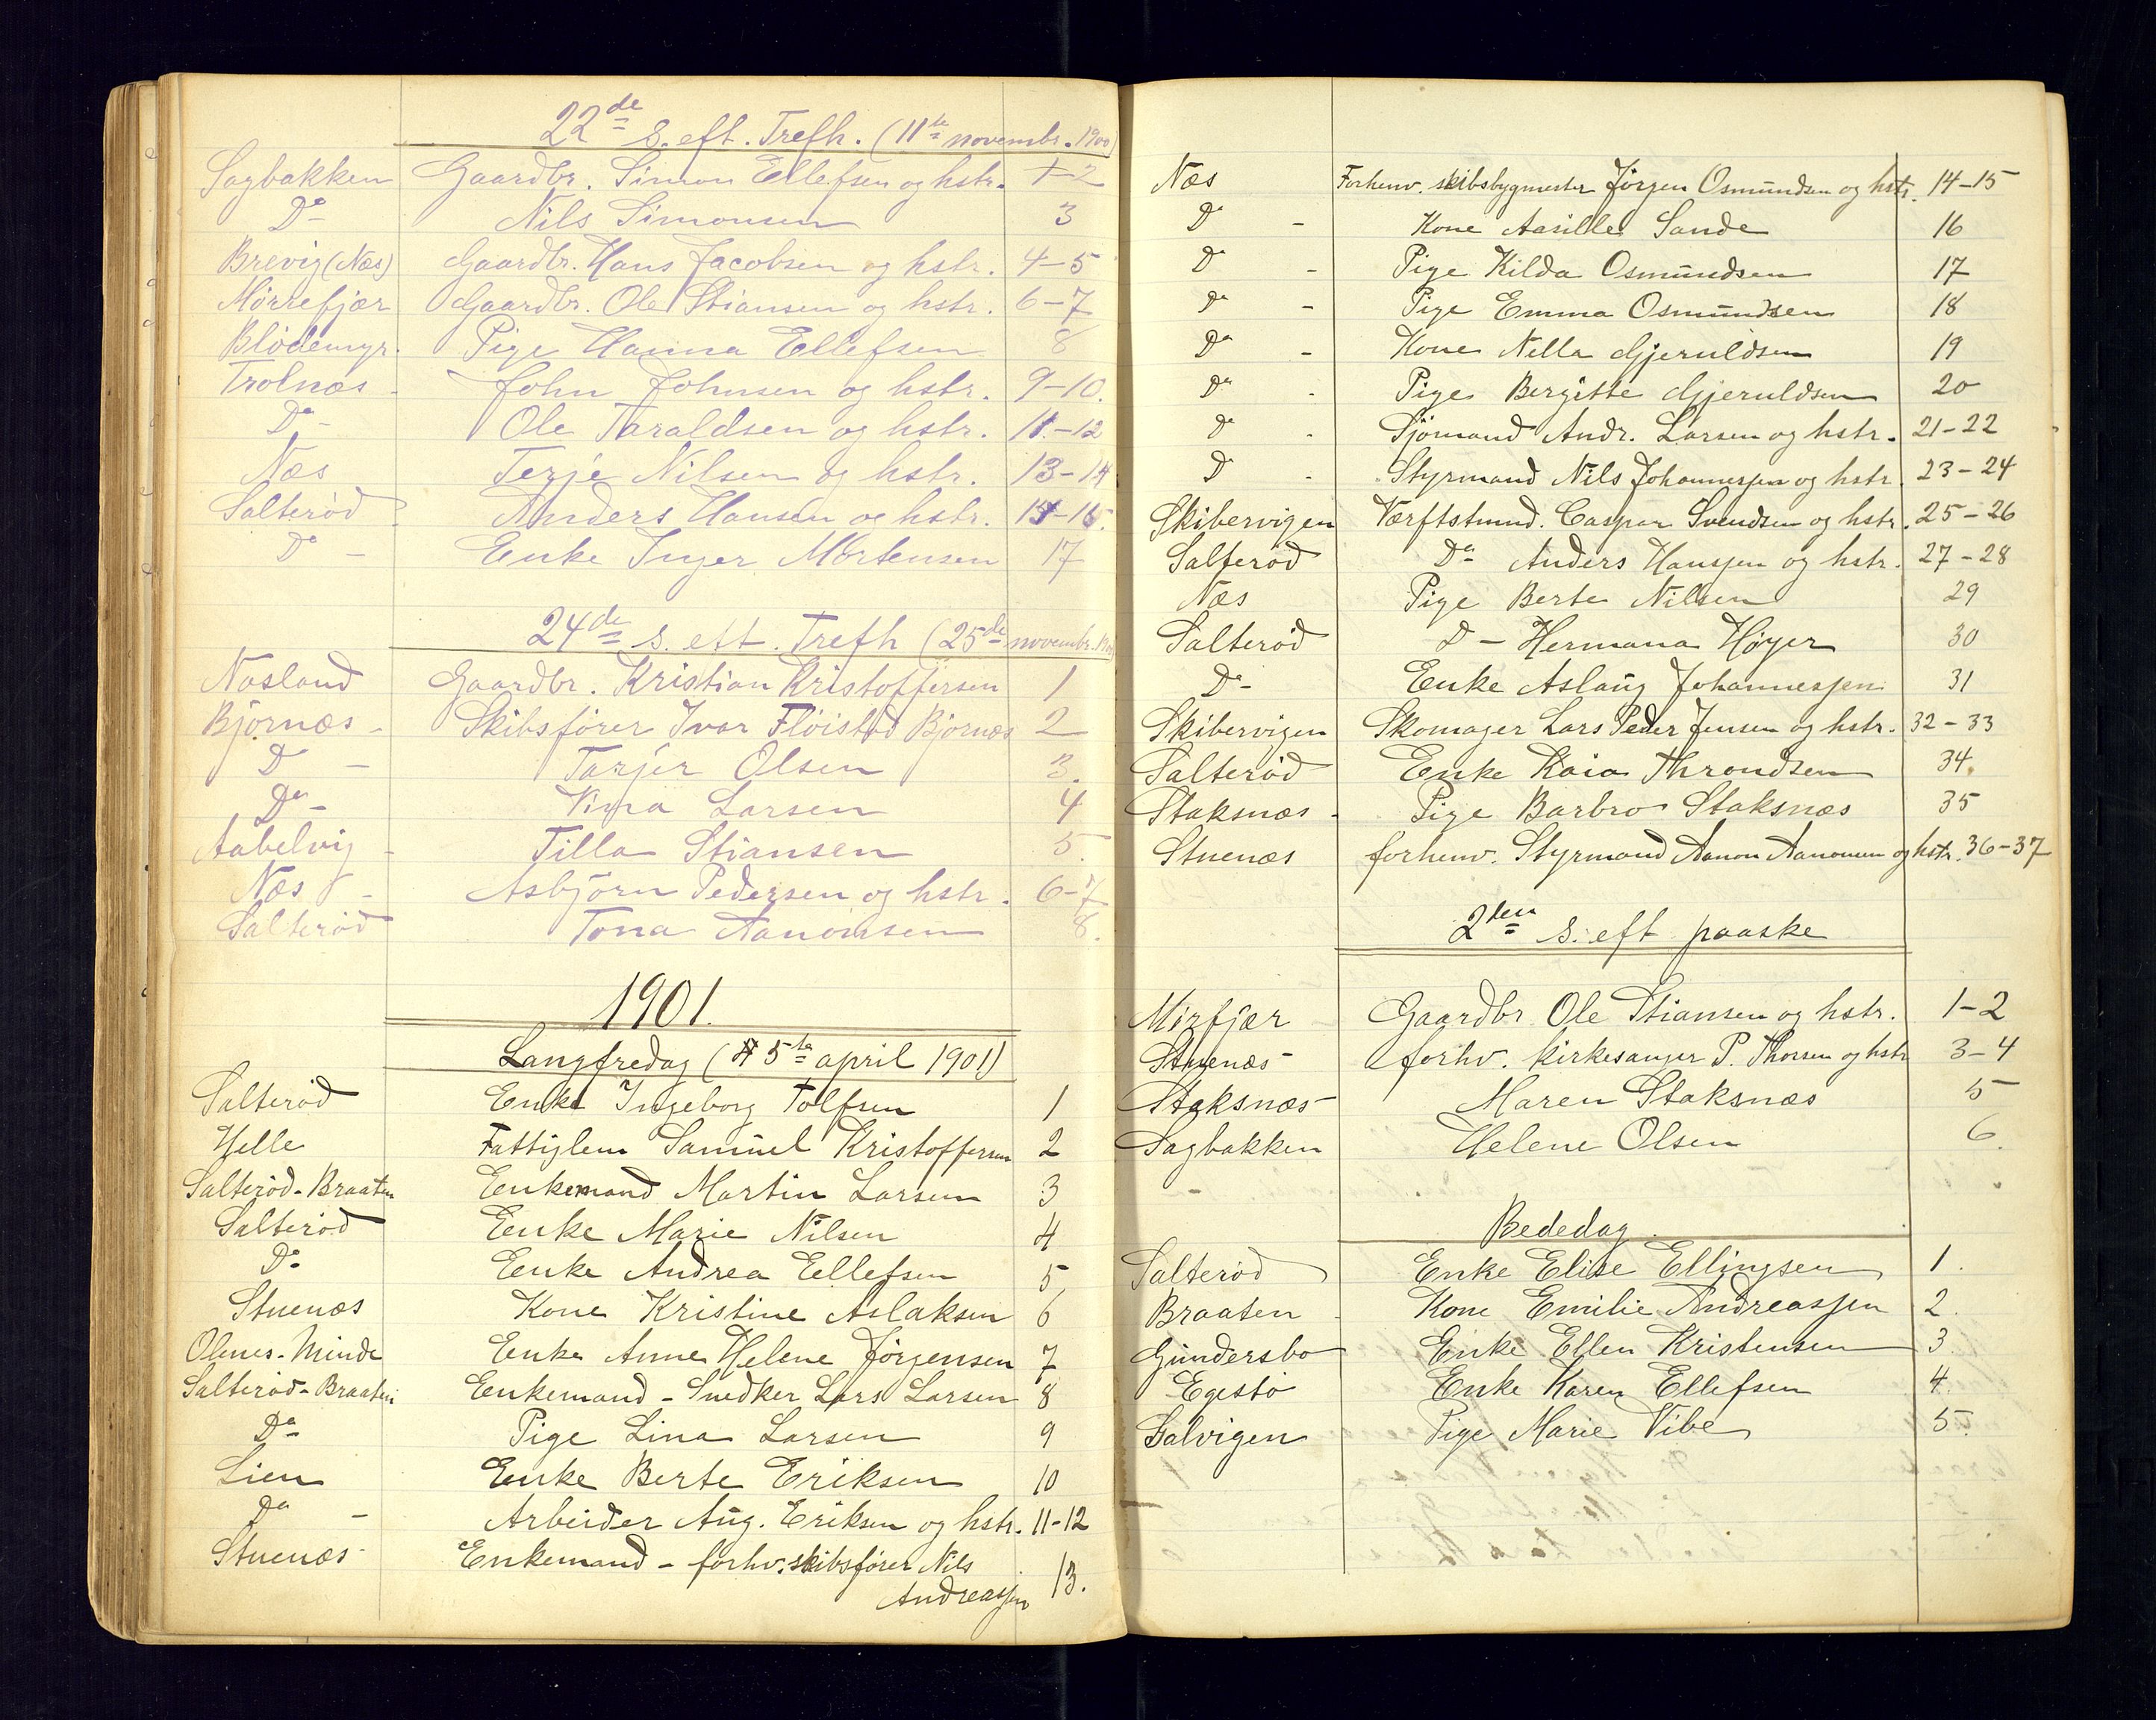 22de s. eft. Trefh. (11te novembr. 1900)
Sagbakken Gaardbr. Simon Ellefsen og hstr. 1-2
Do Nils Simonsen 3
Brevig (Næs) Gaardbr. Hans Jacobsen og hstr. 4-5
Mørrefjær Gaardbr. Ole Stiansen og hstr. 6-7
Blødemyr. Pige Hanna Ellefsen 8
Trolnæs - John Johnsen og hstr. 9-10.
Do - Ole Taraldsen og hstr. 11-12
Næs Terje Nilsen og hstr. 13-14
Salterød Anders Hansen og hstr. 15-16.
Do - Enke Inger Mortensen 17
24de s. eft. Trefh (25de novembr. 1900)
Nasland Gaardbr. Kristian Kristoffersen 1
Bjørnæs - Skibsfører Ivar Fløistad Bjørnæs 2
D - Tarjer Olsen 3.
Do - Lina Larsen 4
Aabelvig - Tilla Stiansen 5.
Næs - Asbjørn Pedersen og hstr. 6-7
Salterød Tona Aanonsen 8.
1901.
Langfredag (5te april 1901)
Salterød Enke Ingeborg Tolfsen 1
Helle Fattiglem Samuel Kristoffersen 2
Salterød-Braaten Enkemand Martin Larsen 3
Salterød Enke Marie Nilsen 4
Do Enke Andrea Ellefsen 5
Stuenæs Kone Kristine Aslaksen 6
Olenes-Minde Enke Anne Helene Jørgensen 7
Salterød-Braaten Enkemand - Snedker Lars Larsen 8
Do Pige Lina Larsen 9
Lien Enke Berte Eriksen 10
Do - Arbeider Aug. Eriksen og hstr. 11-12
Stuenæs Enkemand - forhv. skibsfører Nils
Andreassen 13.
Næs Forhenv. skibsbygmester Jørgen Osmundsen og hstr. 14-15
Do - Kone Aasille Sande 16
Do - Pige Kilda Osmundsen 17
Do - Pige Emma Osmundsen 18
Do - Kone Nella Gjeruldsen 19
Do - Pige Bergitte Gjeruldsen 20
Do - Sjømand Andr. Larsen og hstr. 21-22
D - Styrmand Nils Johannessen og hstr. 23-24
Skibervigen Værftstmnd. Caspar Svendsen og hstr. 25-26
Salterød Do Anders Hanssen og hstr. 27-28
Næs Pige Berte Nilsen 29
Salterød D - Hermana Høyer 30
Do Enke Aslaug Johannessen 31
Skibervigen Skomager Lars Peder Jensen og hstr. 32-33
Salterød Enke Kaia Throndsen 34.
Staksnæs - Pige Barbro Staksnæs 35
Stuenæs forhenv. Styrmand Aanon Aanonsen og hstr. 36-37
2den s. eft paaske
Mirfjær Gaardbr Ole Stiansen og hstr. 1-2
Stuenæs forhv. kirkesanger P. Thorsen og hstr 3-4
Staksnæs Maren Staksnæs 5
Sagbakken Helene Olsen 6.
Bededag
Salterød Enke Elise Ellingsen 1.
Braaten - Kone Emilie Andreassen 2.
Gundersbo Enke Ellen Kristensen 3.
Egestø Enke Karen Ellefsen 4.
Salvigen Pige Marie Vibe 5.